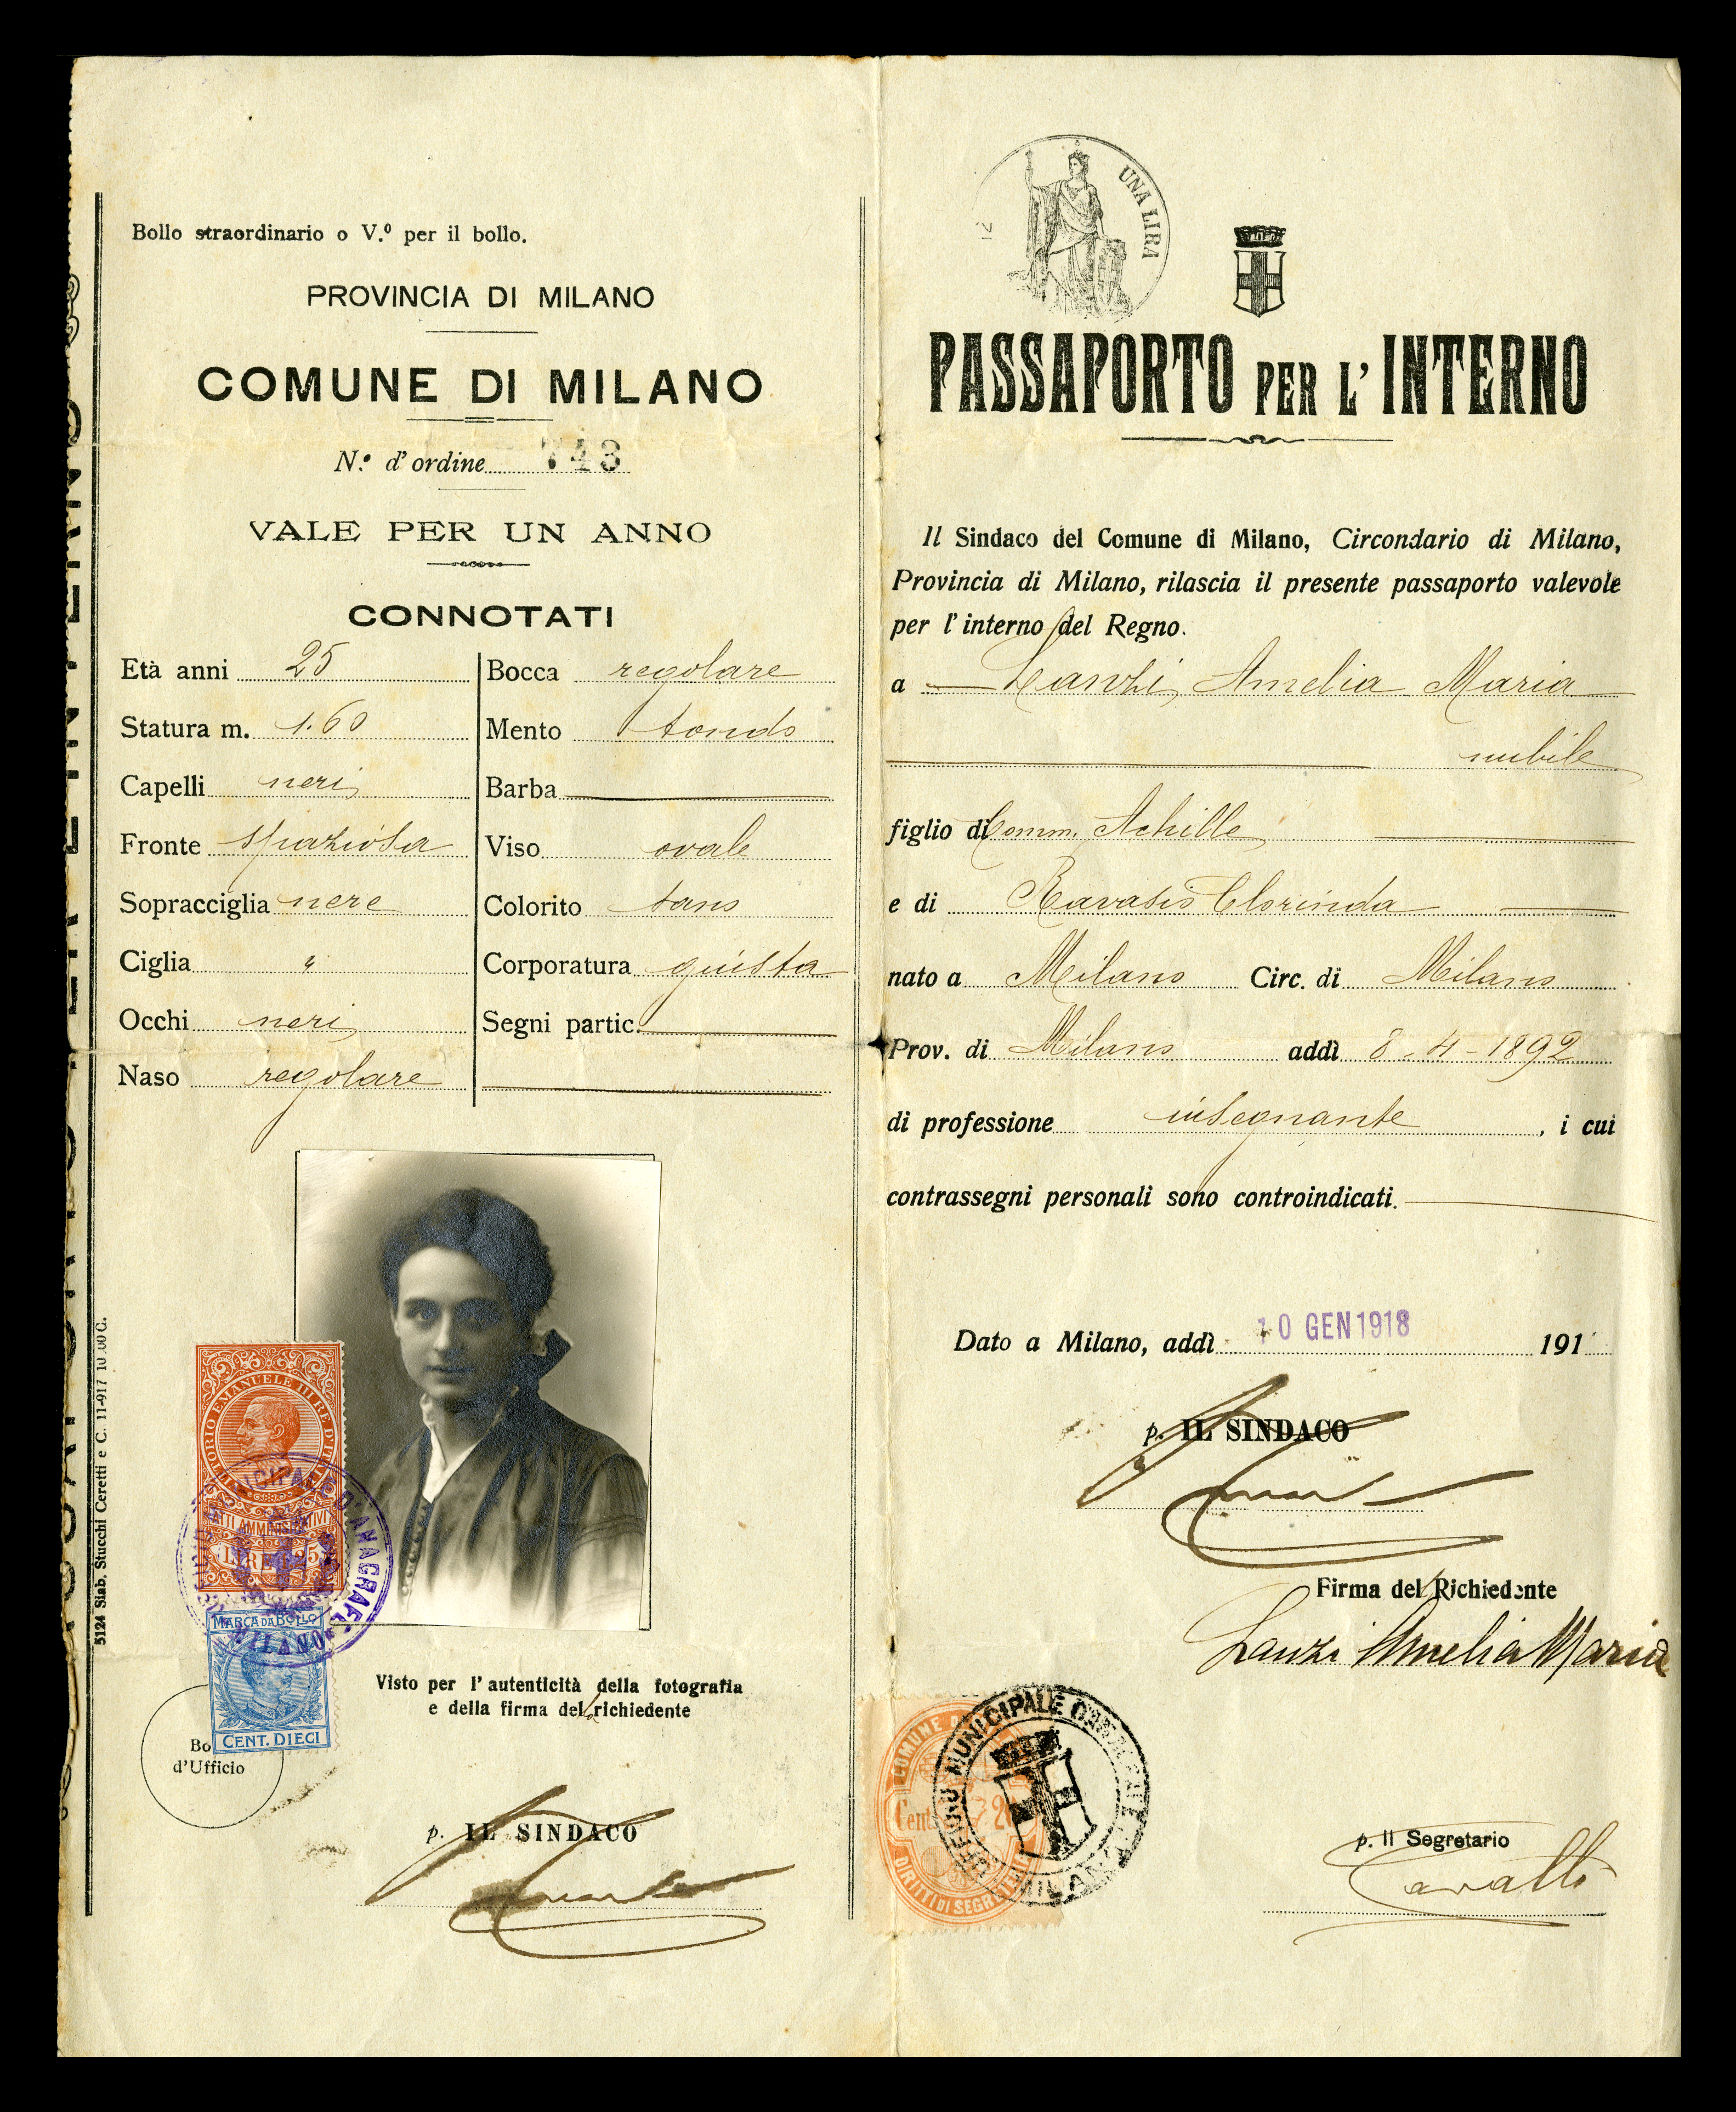 Bollo straordinario o V.º per il bollo.
PROVINCIA DI MILANO
COMUNE DI MILANO
N.º d'ordine 743
VALE PER UN ANNO
CONNOTATI
Età anni 25
Statura m. 1.60
Capelli neri
Fronte spaziosa
Sopracciglia nere
Ciglia "
Occhi neri
Naso regolare
Bocca regolare
Mento tondo
Barba
Viso ovale
Colorito sano
Corporatura giusta
Segni partic.
VITTORIO EMANUELE III RE D'ITALIA
ATTI AMMINISTRATIVI
LIRE
MUNICIPALE D'ANAGRAFE
MILANO
MARCA DA BOLLO
CENT. DIECI
Bo
d'Ufficio
Visto per l'autenticità della fotografia
e della firma del richiedente
p. IL SINDACO
5124 Stab. Stucchi Ceretti e C. 11-917 10.00 C.
UNA LIRA
PASSAPORTO PER L'INTERNO
Il Sindaco del Comune di Milano, Circondario di Milano,
Provincia di Milano, rilascia il presente passaporto valevole
per l'interno del Regno.
a Lanzi Amelia Maria
nubile
figlio di Comm. Achille
e di Ravasio Clorinda
nato a Milano Circ. di Milano
Prov. di Milano addì 8-4-1892
di professione insegnante, i cui
contrassegni personali sono controindicati.
Dato a Milano, addì 10 GEN 1918 191
p. IL SINDACO
Firma del Richiedente
Lanzi Amelia Maria
COMUNE
Cent. 20
DIRITTI DI SEGRETERIA
MUNICIPALE
MILANO
p. Il Segretario
Cavalli